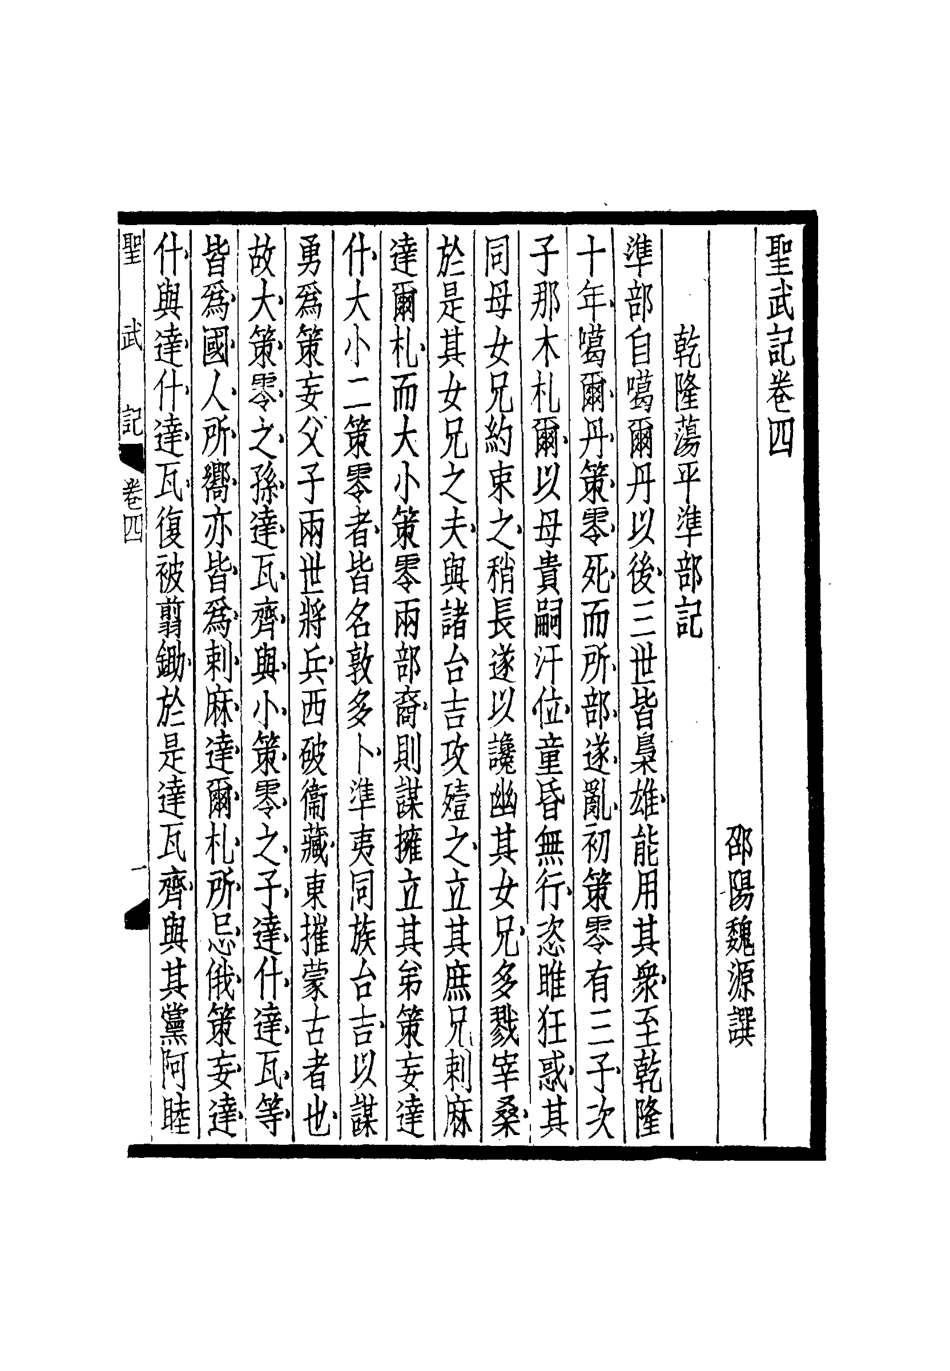 聖武記卷四
邵陽魏源譔
乾隆蕩平準部記
準部自噶爾丹以後三世皆梟雄能用其衆至乾隆
十年噶爾丹策零死而所部遂亂初策零有三子次
子那木札爾以母貴嗣汗位童昏無行恣睢狂惑其
同母女兄約束之稍長遂以讒幽其女兄多戮宰桑
於是其女兄之夫與諸台吉攻殪之立其庶兄剌麻
達爾札而大小策零兩部裔則謀擁立其弟策妄達
什大小二策零者皆名敦多卜準夷同族台吉以謀
勇爲策妄父子兩世將兵西破衞藏東摧蒙古者也
故大策零之孫達瓦齊與小策零之子達什達瓦等
皆爲國人所嚮亦皆爲剌麻達爾札所忌俄策妄達
什與達什達瓦復被翦鋤於是達瓦齊與其黨阿睦
聖武記 卷四 一